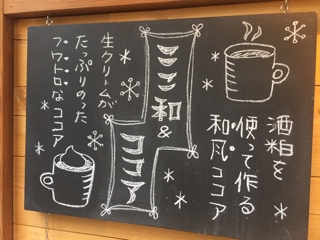 酒粕を
使って作る
和風ココア
ココア和
&
ココア
生クリームが
たっぷりのった
フワトロなココア